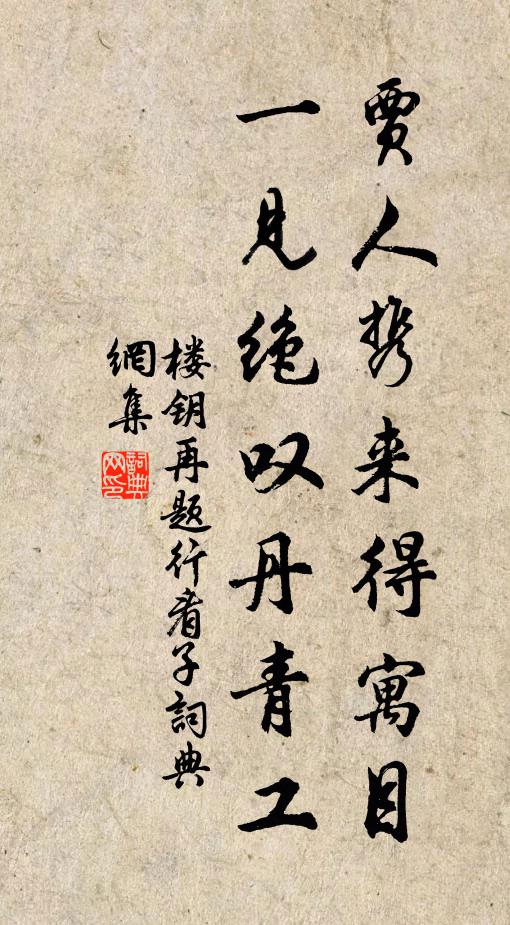 贾人携来得寓目
一见绝叹丹青工
楼钥再题行看子詞典
網集
詞典
网印